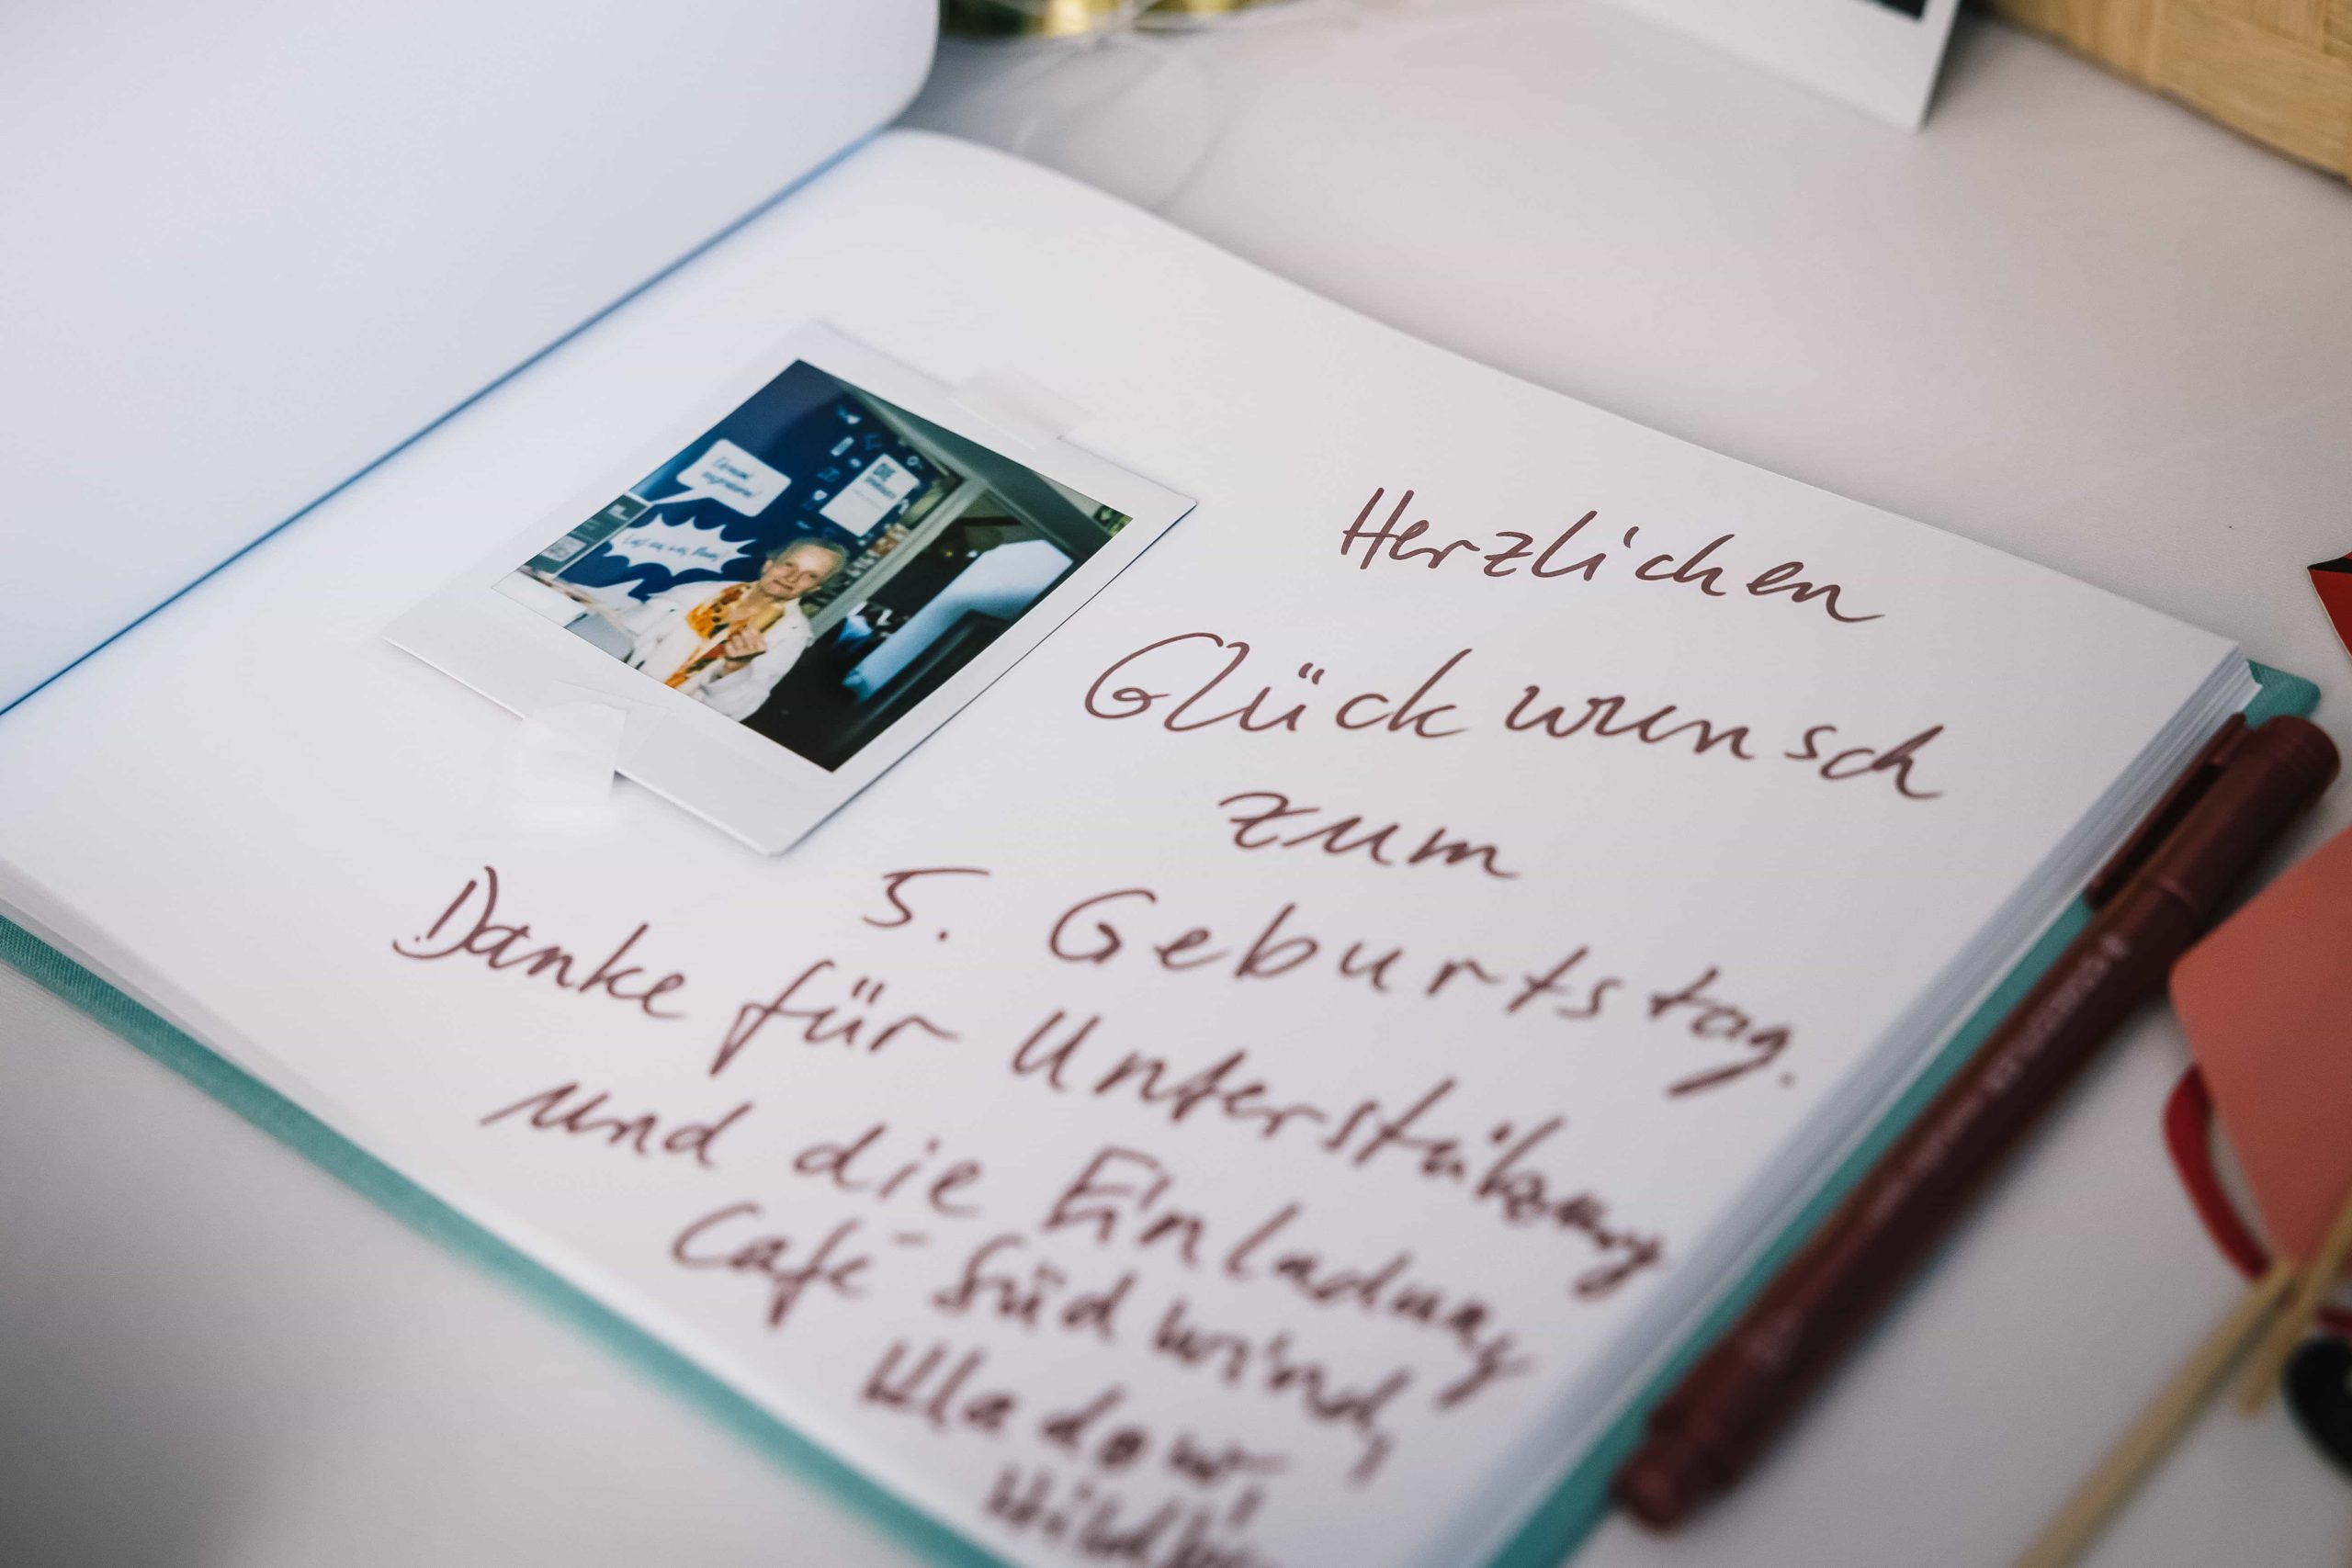 Herzlichen
Glückwunsch
zum
5. Geburtstag.
Danke für Unterstützung
und die Einladung
Café-Südwind,
Kladow,
DIE